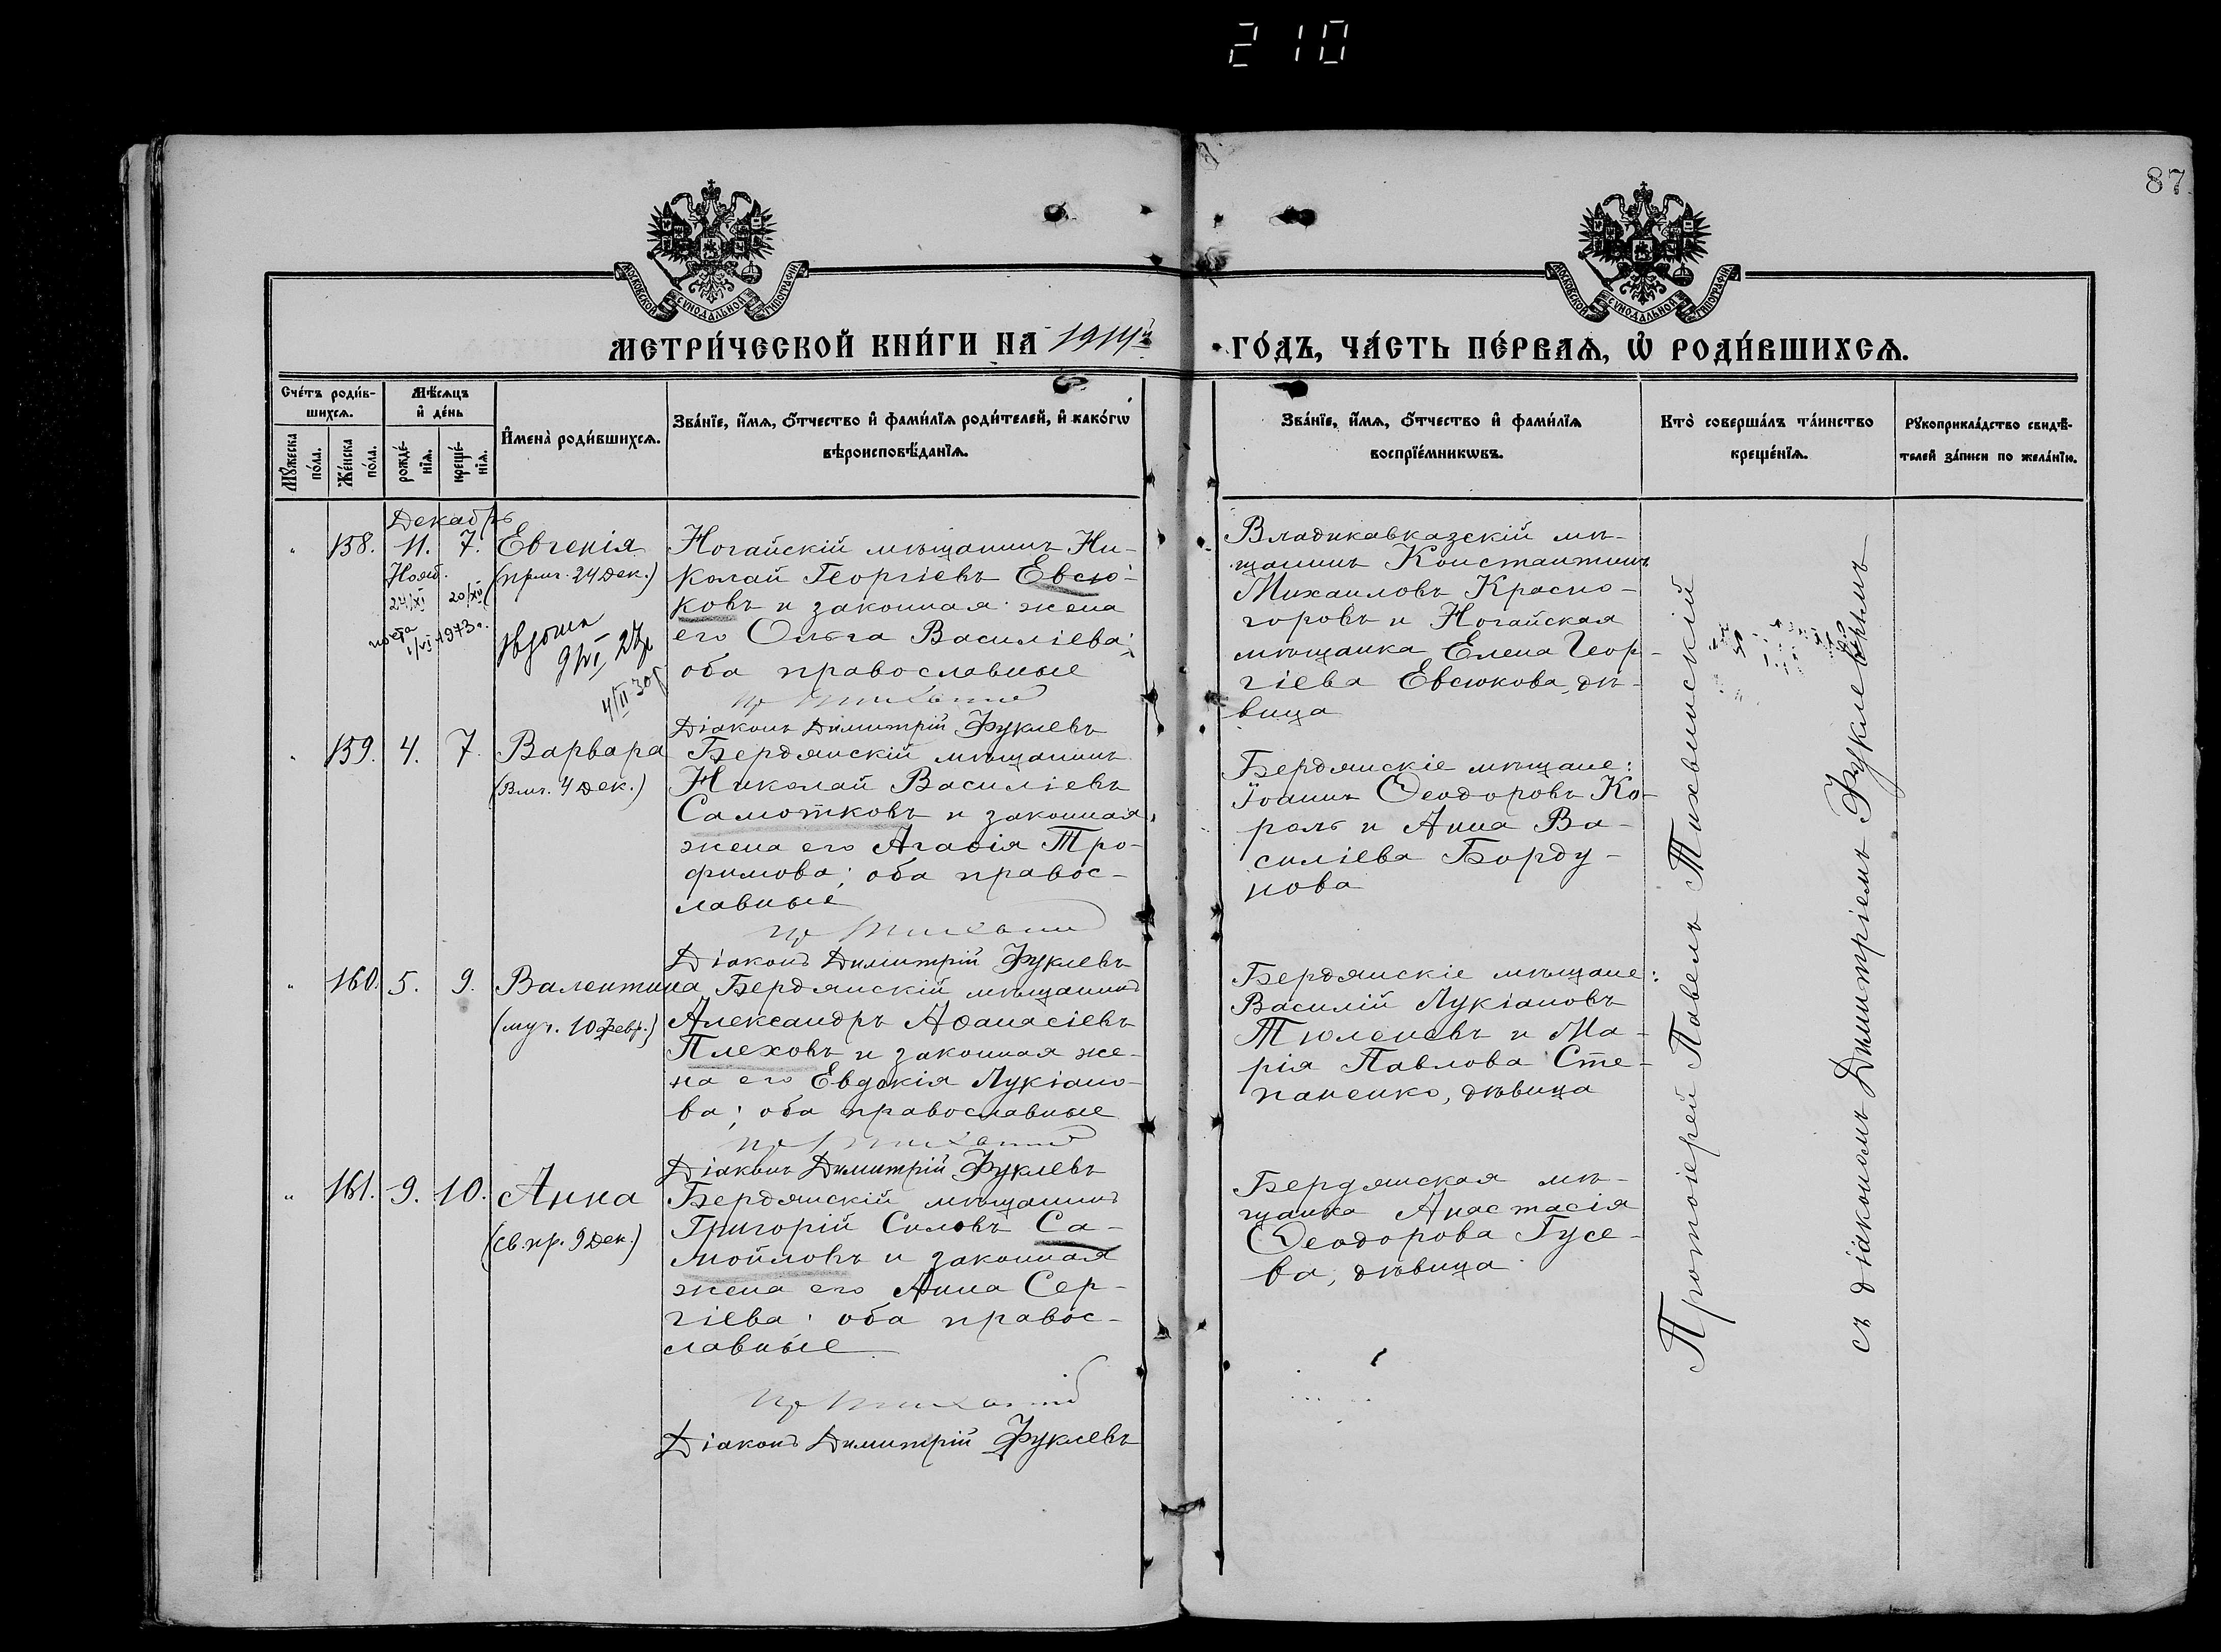 210
87
МОСКОВСКОЙ СУНОДАЛЬНОЙ ТИПОГРАФІИ
МОСКОВСКОЙ СУНОДАЛЬНОЙ ТИПОГРАФІИ
МЕТРИ́ЧЕСКОЙ КНИ́ГИ НА 1914й ГО́ДЪ, ЧА́СТЬ ПЕ́РВАѦ, Ѡ РОДИ́ВШИХСѦ.
Сче́тъ роди́в-
шихсѧ.
Мꙋ́жеска
по́ла.
Же́нска
по́ла.
Мѣ́сѧцъ
и҆ де́нь
рожде́-
нїѧ.
креще́-
нїѧ.
И҆мена̀ роди́вшихсѧ.
Зва́нїе, и҆́мѧ, ѻ҆́тчество и҆ фами́лїѧ роди́телей, и҆ како́гѡ
вѣроисповѣ́данїѧ.
Зва́нїе, и҆́мѧ, ѻ҆́тчество и҆ фами́лїѧ
воспрїе́мникѡвъ.
Кто̀ соверша́лъ та́инство
креще́нїѧ.
Рꙋкоприкла́дство свидѣ́-
телей за́писи по жела́нїю.
Декабрь
" 158. 11. 7. Евгенія
Нояб.
(прмч. 24 Дек.)
24/XI 20/XII
1/VI 1973 г.
9/VI 27г
4/II 30г
Ногайскій мѣщанинъ Ни-
колай Георгіевъ Евсю-
ковъ и законная жена
его Ольга Василіева;
оба православные
пр Тихвинскій
Діаконъ Димитрій Фуклевъ
Владикавказскій мѣ-
щанинъ Константинъ
Михаиловъ Красно-
горовъ и Ногайская
мѣщанка Елена Геор-
гіева Евсюкова, дѣ-
вица
" 159. 4. 7. Варвара
(Влмч. 4 Дек.)
Бердянскій мѣщанинъ
Николай Василіевъ
Самотковъ и законная
жена его Агаѳія Тро-
фимова; оба правос-
лавные
пр Тихвинскій
Діаконъ Димитрій Фуклевъ
Бердянскіе мѣщане:
Іоаннъ Ѳеодоровъ Ко-
роль и Анна Ва-
силіева Борду-
нова
" 160. 5. 9. Валентина
(муч. 10 февр.)
Бердянскій мѣщанинъ
Александръ Аѳанасіевъ
Плеховъ и законная же-
на его Евдокія Лукіано-
ва; оба православные
пр Тихвинскій
Діаконъ Димитрій Фуклевъ
Бердянскіе мѣщане:
Василій Лукіановъ
Тюленевъ и Ма-
рія Павлова Сте-
паненко, дѣвица
" 161. 9. 10. Анна
(св. пр. 9 Дек.)
Бердянскій мѣщанинъ
Григорій Силовъ Са-
мойловъ и законная
жена его Анна Сер-
гіева; оба правос-
лавные
пр Тихвинскій
Діаконъ Димитрій Фуклевъ
Бердянская мѣ-
щанка Анастасія
Ѳеодорова Гусе-
ва, дѣвица
Протоіерей Павелъ Тихвинскій
съ діакономъ Димитріемъ Фуклевымъ